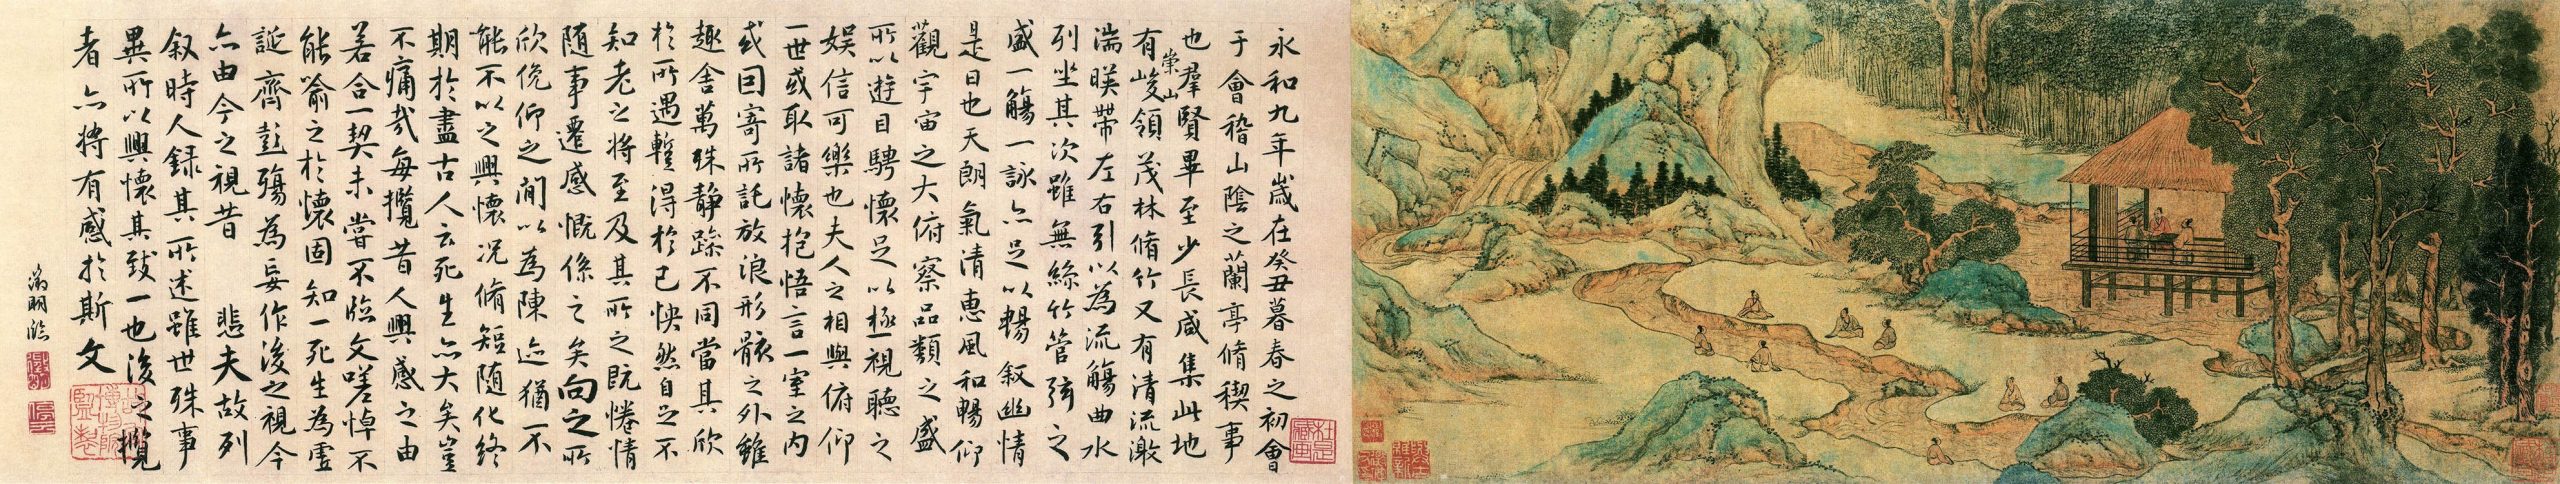 永和九年歲在癸丑暮春之初會
于會稽山陰之蘭亭脩稧事
也羣賢畢至少長咸集此地
有崇山峻領茂林脩竹又有清流激
湍暎帶左右引以為流觴曲水
列坐其次雖無絲竹管弦之
盛一觴一詠亦足以暢叙幽情
是日也天朗氣清惠風和暢仰
觀宇宙之大俯察品類之盛
所以遊目騁懷足以極視聽之
娛信可樂也夫人之相與俯仰
一世或取諸懷抱悟言一室之內
或因寄所託放浪形骸之外雖
趣舍萬殊靜躁不同當其欣
於所遇蹔得於己怏然自足不
知老之將至及其所之既惓情
随事遷感慨係之矣向之所
欣俛仰之閒以為陳迹猶不
能不以之興懷況脩短隨化終
期於盡古人云死生亦大矣豈
不痛哉每攬昔人興感之由
若合一契未嘗不臨文嗟悼不
能喻之於懷固知一死生為虛
誕齊彭殤為妄作後之視今
亦由今之視昔 悲夫故列
叙時人錄其所述雖世殊事
異所以興懷其致一也後之攬
者亦將有感於斯文
徵明臨
故宮博物院監製